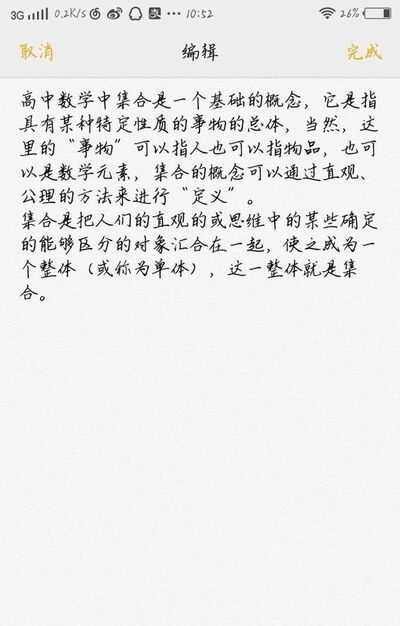 3G 0.2K/s 10:52 26%
取消 编辑 完成
高中数学中集合是一个基础的概念，它是指
具有某种特定性质的事物的总体，当然，这
里的“事物”可以指人也可以指物品，也可
以是数学元素，集合的概念可以通过直观、
公理的方法来进行“定义”。
集合是把人们的直观的或思维中的某些确定
的能够区分的对象汇合在一起，使之成为一
个整体（或称为单体），这一整体就是集
合。